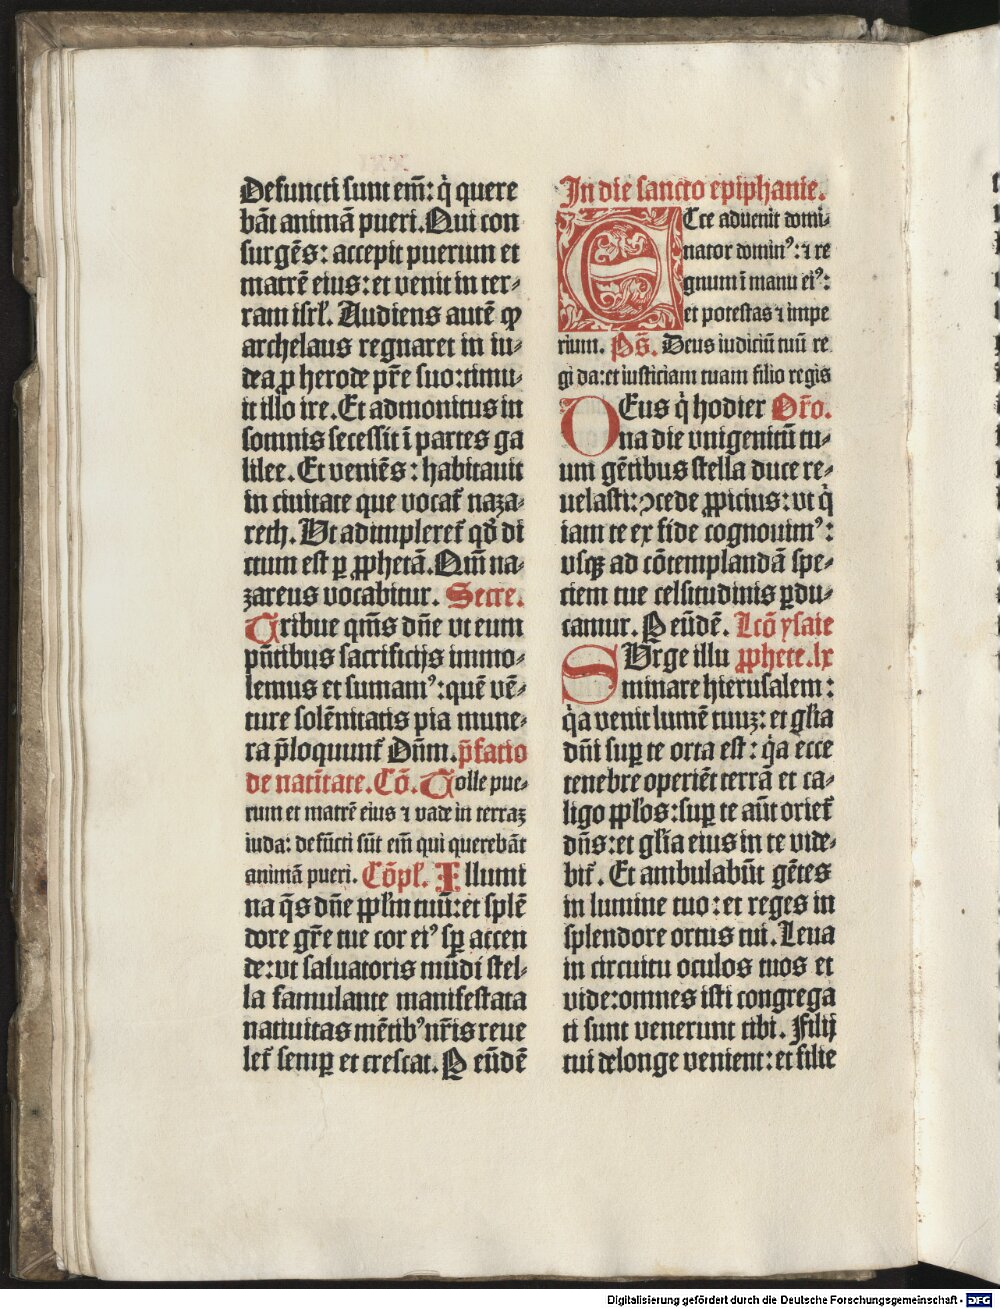 Defuncti sunt em̄: q̇ quere
bāt animā pueri. Qui con
surgēs: accepit puerum et
matrē eius: et venit in ter-
ram isrl̓. Audiens autē ꝙ
archelaus regnaret in iu-
dea ꝓ herode pr̄e suo: timu-
it illo ire. Et admonitus in
somnis secessit ī partes ga
lilee. Et veniēs: habitauit
in ciuitate que vocat᷑ naza-
reth. Vt adimpleret᷑ qd̓ di
ctum est ꝑ ꝓphetā. Qm̄ na-
zareus vocabitur. Secre.
Tribue qm̄s dn̄e vt eum
pn̄tibus sacrificijs immo-
lemus et sumamꝰ: quē vē-
ture solēnitatis pia mune-
ra p̄loquunt᷑ Dn̄m. p̄fatio
de natītate. Cō. Tolle pue-
rum et matrē eius ⁊ vade in terraꝫ
iuda: defūcti sūt em̄ qui querebāt
animā pueri. Cōpl̓. Illumi
na q̄s dn̄e ppl̓m tuū: et splē
dore gr̄e tue cor eiꝰ sꝑ accen
de: vt saluatoris mūdi stel-
la famulante manifestata
natiuitas mētibꝰ nr̄is reue
let᷑ semꝑ et crescat. P eūdē
In die sancto epiphanie.
ECce aduenit domi-
nator dominꝰ: ⁊ re
gnum ī manu eiꝰ:
et potestas ⁊ impe
rium. Ps̄. Deus iudiciū tuū re
gi da: et iusticiam tuam filio regis
DEus q̇ hodier Or̄o.
na die vnigenitū tu-
um gētibus stella duce re-
uelasti: ꝯcede ꝓpicius: vt q̇
iam te ex fide cognouimꝰ:
vsqꝫ ad cōtemplandā spe-
ciem tue celsitudinis ꝑdu-
camur. P eūdē. Lcō ysaie
SUrge illu ꝓphete. lx
minare hierusalem:
q̇a venit lumē tuuꝫ: et gl̓ia
dn̄i suꝑ te orta est: q̇a ecce
tenebre operiēt terrā et ca-
ligo ppl̓os: suꝑ te aūt oriet᷑
dn̄s: et gl̓ia eius in te vide-
bit᷑. Et ambulabūt gētes
in lumine tuo: et reges in
splendore ortus tui. Leua
in circuitu oculos tuos et
vide: omnes isti congrega
ti sunt venerunt tibi. Filij
tui delonge venient: et filie
Digitalisierung gefördert durch die Deutsche Forschungsgemeinschaft - DFG